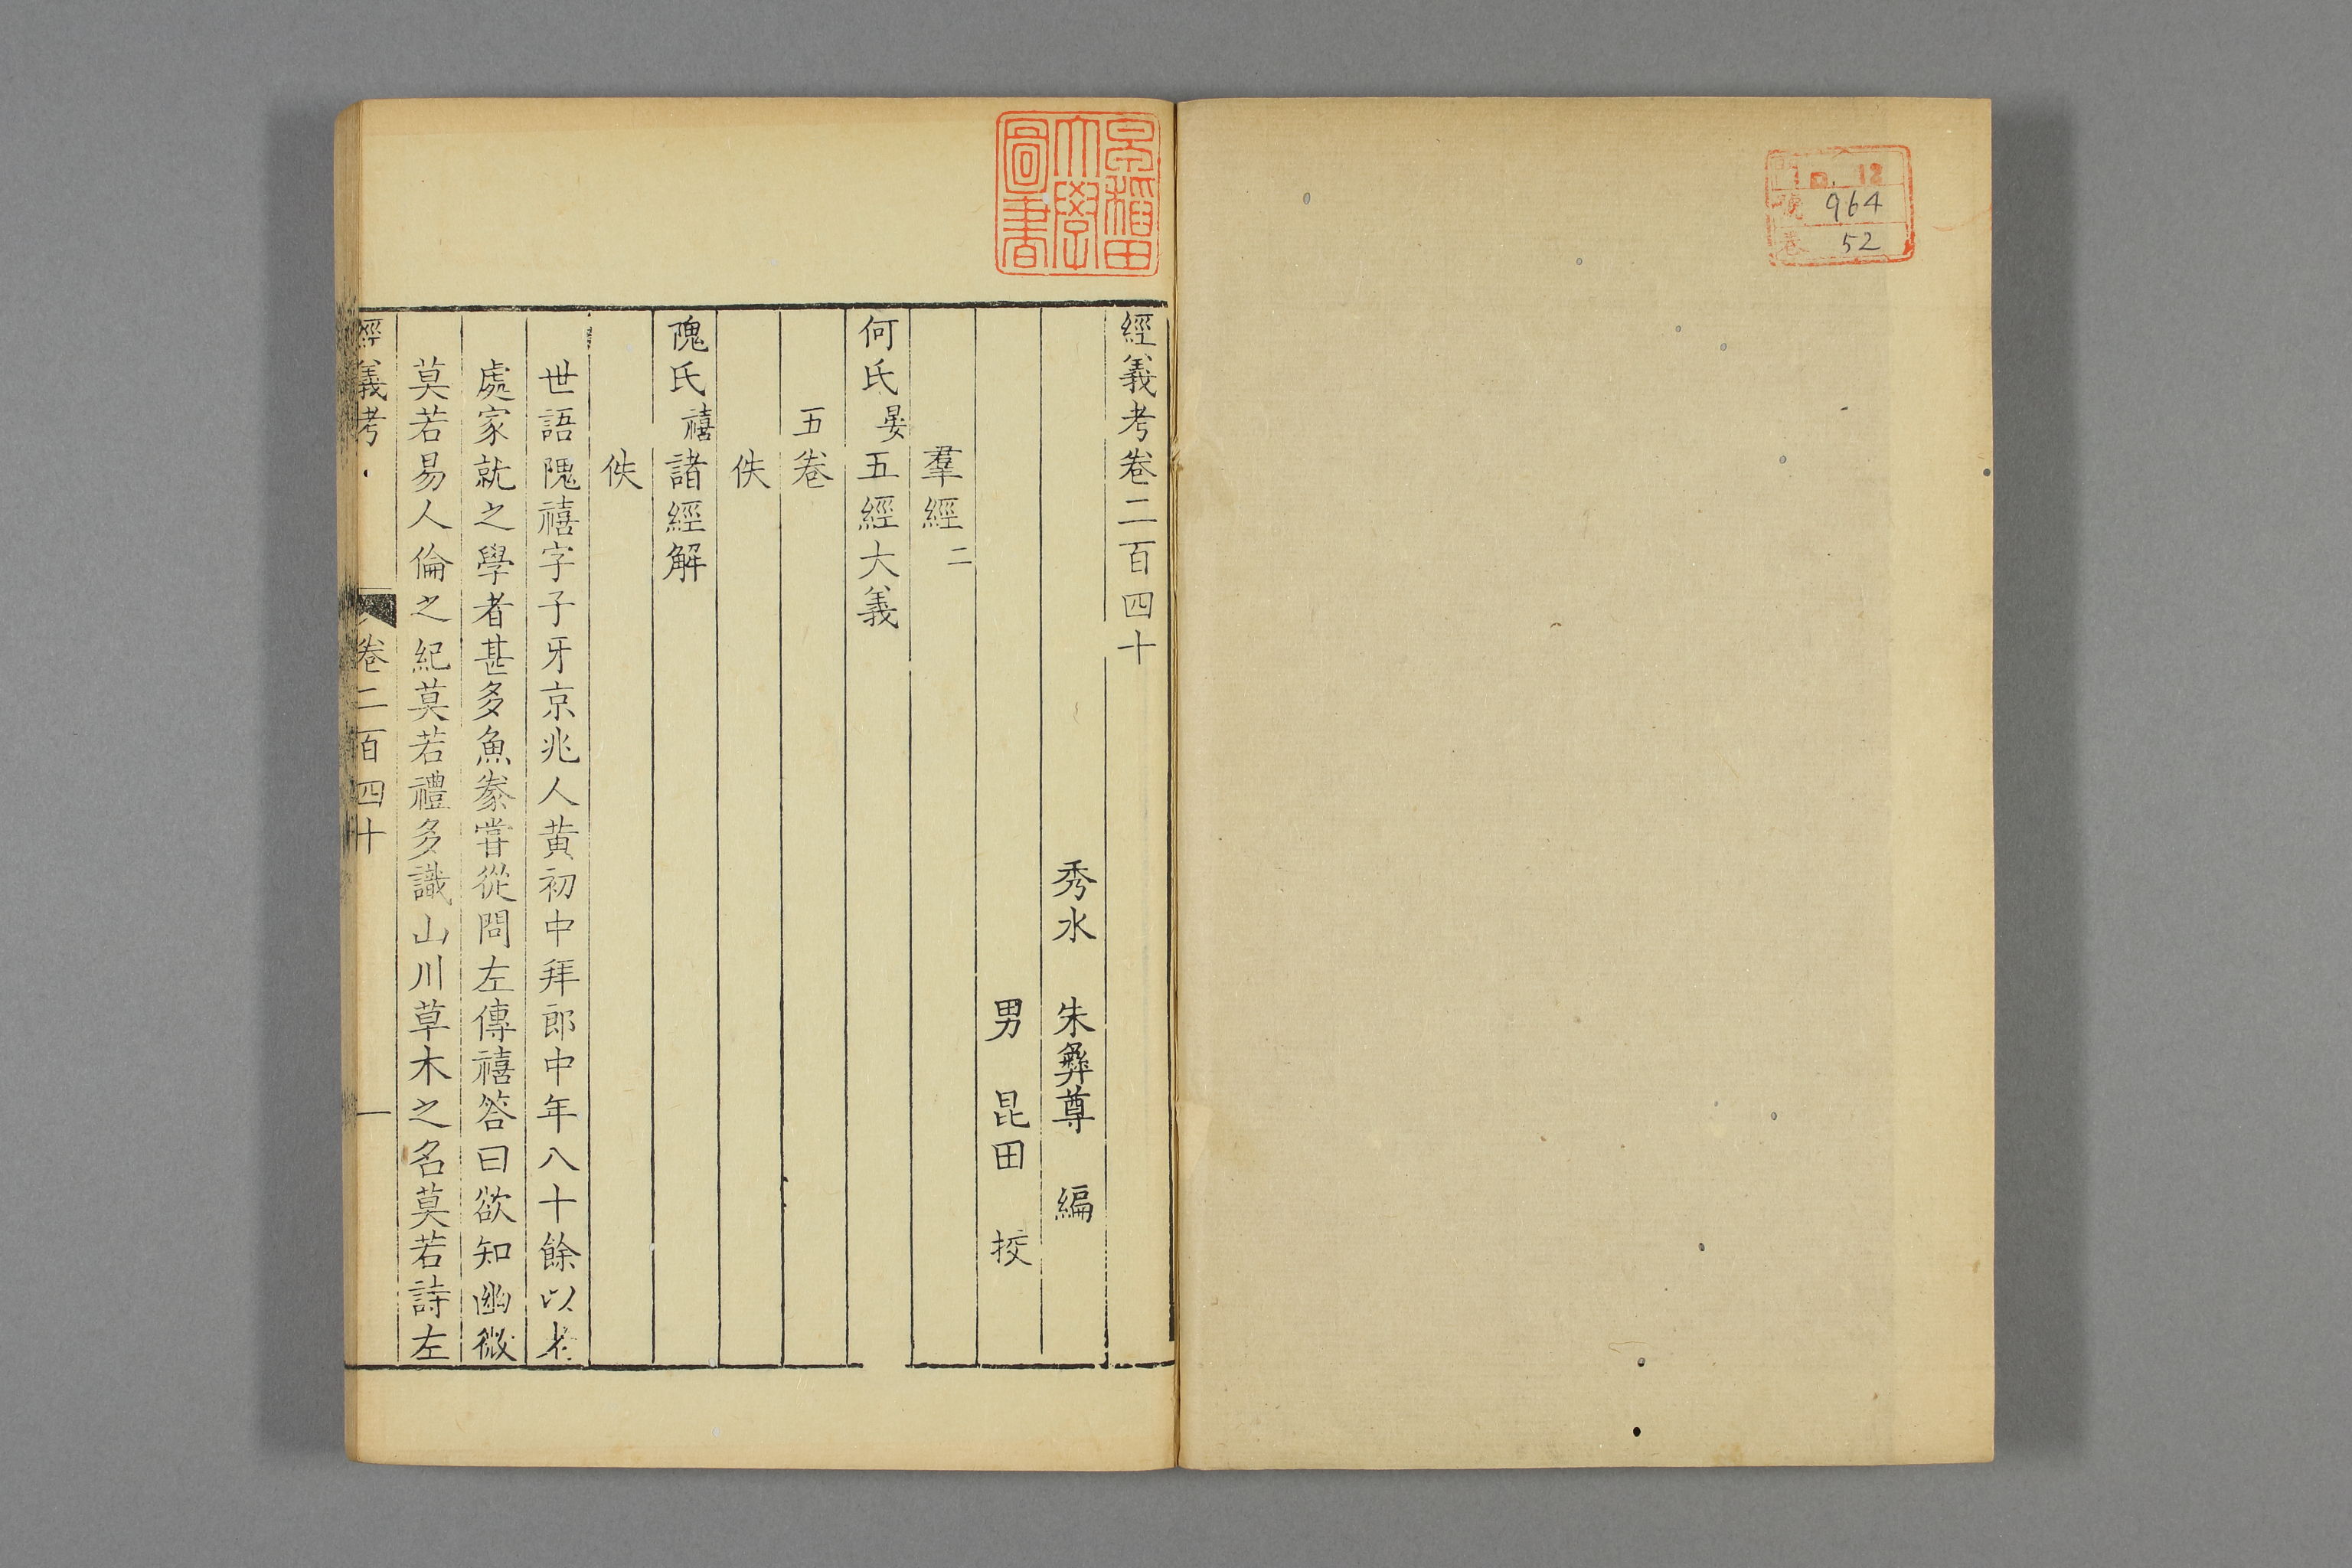 門 ロ 12
號 964
巻 52
早稲田
大學
圖書
經義考卷二百四十
秀水 朱彝尊 編
男 昆田 挍
羣經二
何氏晏五經大義
五卷
佚
隗氏禧諸經解
佚
世語隗禧字子牙京兆人黄初中拜郎中年八十餘以老
處家就之學者甚多魚豢嘗從問左傳禧答曰欲知幽微
莫若易人倫之紀莫若禮多識山川草木之名莫若詩左
經義考 卷二百四十 一